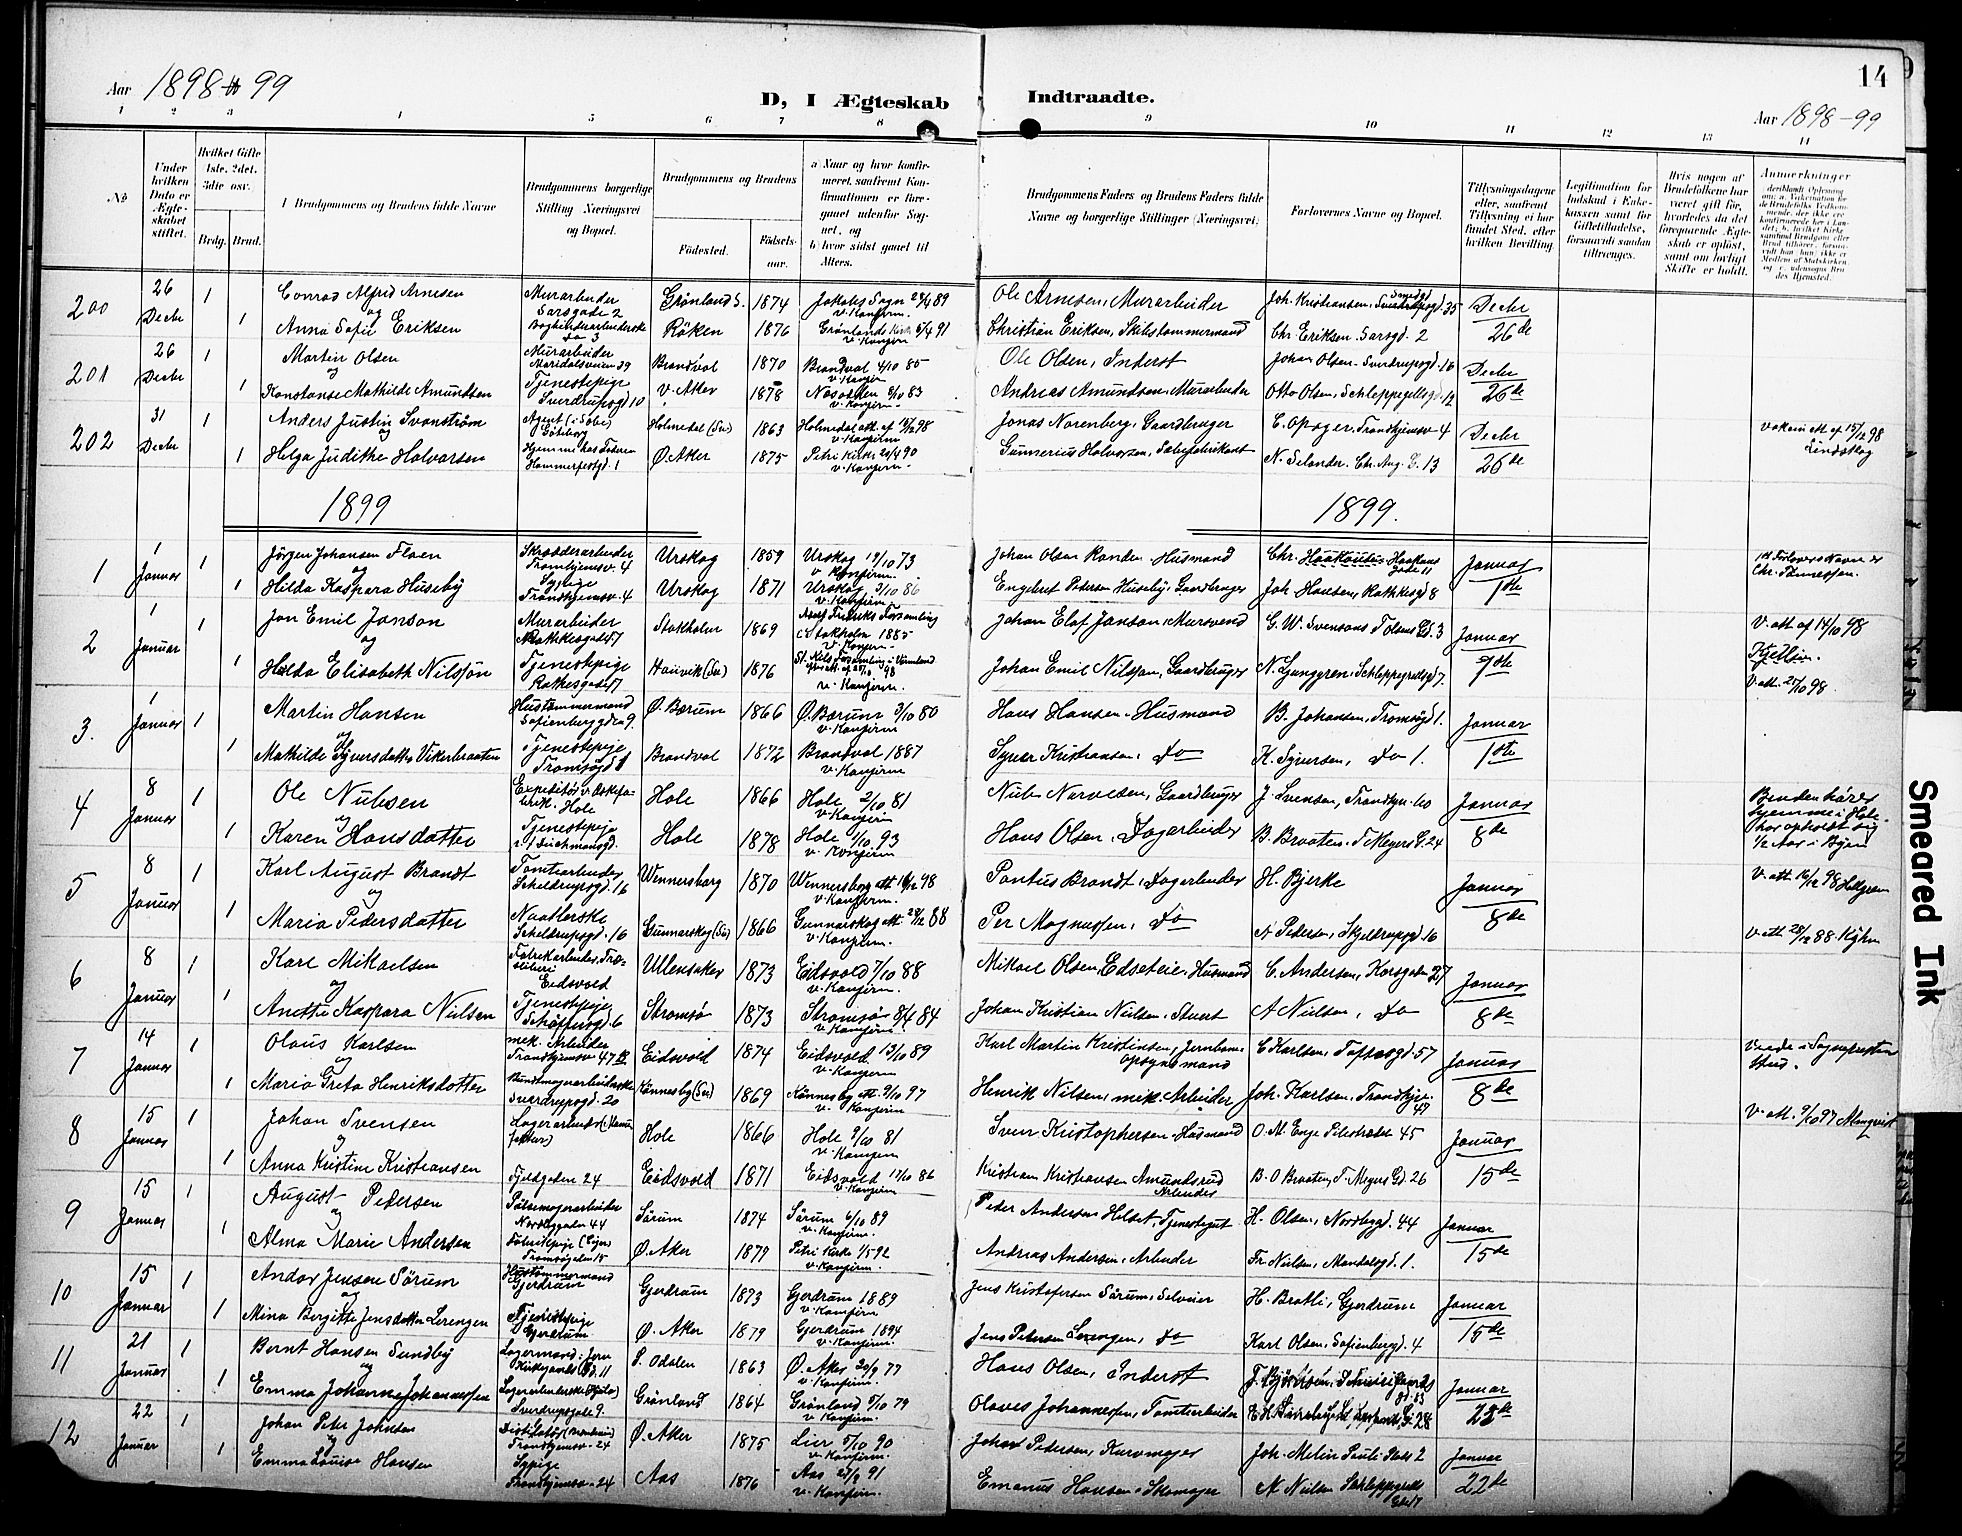 Aar 1898-99
D, I Ægteskab Indtraadte.
14
Aar 1898-99
1 2 3 4 5 6 7 8 9 10 11 12 13 14
No
Under hvilken Dato er Ægteskabet stiftet.
Hvilket Gifte 1ste, 2det, 3die osv.
Brdg. Brud.
Brudgommens og Brudens fulde Navne
Brudgommens borgerlige Stilling Næringsvei og Bopæl.
Brudgommens og Brudens
Fødested. Fødselsaar.
a Naar og hvor konfirmeret, saafremt Konfirmationen er foregaaet udenfor Sognet, og
b hvor sidst gaaet til Alters.
Brudgommens Faders og Brudens Faders fulde Navne og borgerlige Stillinger (Næringsvei)
Forlovernes Navne og Bopæl.
Tillysningsdagene eller, saafremt Tillysning ei har fundet Sted, efter hvilken Bevilling
Legitimation for Indskud i Enkekassen samt for Giftetilladelse, forsaavidt saadan tiltrænges.
Hvis nogen af Brudefolkene har været gift før, hvorledes da det foregaaende Ægteskab er opløst, samt om lovligt Skifte er holdt.
Anmerkninger
200 26 Decbr 1 Conrad Alfred Arnesen Murarbeider Sarsgade 2 Grønland S. 1874 Jakobs Sogn 29/4 89 v. Konfirm. Ole Arnesen, Murarbeider Joh. Kristiansen, 35 Decbr 26de
og
1 Anna Sofie Eriksen Røken 1876 Grønlands Kirke 5/4 91 v. Konfirm Christian Eriksen, Skibstømmermand Chr. Eriksen Sarsgd. 2
201 26 Decbr 1 Martin Olsen Murarbeider Maridalsveien 39 Brandvol 1870 Brandvol 4/10 85 v. Konfirm Ole Olsen, Inderst Johan Olsen Sverdrupsgd. 16 Decbr 26de
og
1 Konstanse Mathilde Amundsen Tjenestepige Sverdrupsgd 10 V. Aker 1878 Næsodden 8/10 83 v. Konfirm. Andreas Amundsen, Murarbeider Otto Olsen, Schleppegrellsgd. 12
202 31 Decbr 1 Anders Justin Svanström Agent Göteborg Holmedal (Sv) 1863 Holmedal att. af 15/12 98 v. Konfirm Jonas Norenberg, Gaardbruger C. Opsger, Trondhjemsv. 4 Decbr 26de
vakein att af 15/12 98 Lindskog
og
1 Helga Judithe Halvorsen Hjemme hos Faderen Hammerfestgd. 1 Ø. Aker 1875 Petri Kirke 20/4 90 v. Konfirm. Gunnerius Halvorsen, Sæbefabrikant N. Selander, Chr. Aug. G. 13
1899 1899.
1 1 Januar 1 Jørgen Johansen Floen Skrædderarbeider Tromhjemsv. 4 Urskog 1859 Urskog 19/10 73 v. Konfirm. Johan Olsen Randen, Husmand Chr. Haakonsen Haakons gade 11 Januar 1ste
1st Forlovers Navn er Chr. Tønnessen.
og
1 Hilda Kaspara Huseby Sypige Trondhjemsv. 4 Urskog 1871 Urskog 3/10 86 v. Konfirm Engebret Pedersen Huseby, Gaardbruger Joh. Hansen, Rathkesgd 8
2 1 Januar 1 Jon Emil Janson Murarbeider Rathkesgade 17 Stokholm 1869 Adolf Fredriks Forsamling i Stokholm 1885 v. Konfirm. Johan Elof Janson, Mursvend G. W. Svenson, Tøiens Gd. 3 Januar 1ste
V. att af 14/10 98
og
1 Hulda Elisabeth Nilsson Tjenestepige Ratkesgade 17 (Sv) 1876 v. Konfirm. Johan Emil Nilsson, Gaardbruger N. Ljunggren, Schleppegrellsgd 7.
V. att. 25/10 98.
3. 1 Januar 1 Martin Hansen Hustømmermand Sofienberggden 9. Ø. Bærum 1866 Ø. Bærum 3/10 80 v. Konfirm Hans Hansen, Husmand B. Johansen, Tromsøgd 1. Januar 1ste
og
1 Mathilde Syversdatter Vikerbraaten Tjenestepige Tromsøgd 1 Brandvol 1872 Brandvol 1887 v. Konfirm Syver Kristiansen, Do K. Syversen, Do 1.
4 8 Januar 1 Ole Nielsen Expeditør v. Hole Hole 1866 Hole 2/10 81 v. Konfirm Niels Narvesen, Gaardbruger J. Svensen, Trondhjv. 60 Januar 8de
Bruden hører hjemme i Hole, har opholdt sig 1/2 Aar i Byen
og
1 Karen Hansdatter Tjenestepige Hole 1878 Hole 1/10 93 v. Konfirm Hans Olsen, Dagarbeider B. Braaten, T. Meyers G. 24
5 8 Januar 1 Karl August Brandt Tomtearbeider Scheldrupsgd. 16 Wennersborg 1870 Wennersborg att 16/12 98 v. Konfirm. Pontus Brandt, Dagarbeider H. Bjerke Januar 8de
V. att. 16/12 98
og
1 Maria Pedersdatter Schieldrupsgd. 16 Gunnarskog (Sv) 1866 Gunnarskog att. 28/12 88 v. Konfirm. Per Magnussen, Do A Pedersen, Skjeldrupsgd. 16
V. att. 28/12 88.
6 8 Januar 1 Karl Mikaelsen Fabrikarbeider, Eidsvold Ullensaker 1873 Eidsvold 7/10 88 v. Konfirm. Mikael Olsen, Edseteie, Husmand C. Andersen, Korsgaden 27 Januar 8de
og
1 Anette Kaspara Nielsen Tjenestepige 6 Strømsø 1873 Strømsø 8/4 84 v. Konfirm Johan Kristian Nielsen, Stuert A Nielsen, Do
7 14 Januar 1 Olaus Karlsen mek. Arbeider Trondhjemsv 47 Eidsvold 1874 Eidsvold 13/10 89 v. Konfirm Karl Martin Kristinsen, Jernbaneopsynsmand C Karlsen, Toftesgd. 57 Januar 8de
Viede i Sognepresten Hus.
og
1 Maria Greta Henriksdotter Buntmagerarbeiderske Sverdrupsgd. 20 (Sv) 1869 att. 9/10 97 v. Konfirm Henrik Nilsen, mek Arbeider Joh. Karlsen, Trondhjv. 47
V. att. 9/10 97 Almqvist
8 15 Januar 1 Johan Svensen Lagerarbeider Hole 1866 Hole 9/10 81 v. Konfirm Sven Kristophersen, Husmand O. M. Enge Pilestrædet 45 Januar 15de
og
1 Anna Kristine Kristiansen Fjeldgaden 24 Eidsvold 1871 Eidsvold 17/10 86 v. Konfirm Kristian Kristiansen Amundsrud Arbeider B. O Braaten, T. Meyers Gd. 26
9 15 Januar 1 August Pedersen Pølsemagerarbeider Nordbygaden 44 Sørum 1874 Sørum 6/10 89 v. Konfirm. Peder Andersen Helset, Tjenestegut H. Olsen, Nordbygd. 44 Januar 15de
og
1 Alma Marie Andersen Fabrikpige Tromsøgaden 15 Ø. Aker 1879 Petri Kirke 1/5 92 v. Konfirm. Andreas Andersen, Arbeider Fr. Nielsen, Mandalsgd. 1.
10 15 Januar 1 Andor Jensen Sørum Hustømmermand Gjerdrum Gjerdrum 1873 Gjerdrum 1889 v. Konfirm Jens Kristofersen Sørum, Selveier H. Bratli, Gjerdrum Januar 15de
og
1 Mina Birgitte Jensdatter Lerengen Tjenestepige Gjerdrum Ø. Aker 1879 Gjerdrum 1894 v. Konfirm. Jens Petersen Lerengen, Do Karl Olsen, Sofienbergd. 4
11 21 Januar 1 Bernt Hansen Sundby Lagermand i Jern 11 S. Odalen 1863 Ø. Aker 20/9 77 v. Konfirm. Hans Olsen, Inderst Januar 22de
og
1 Emma Johanne Johannessen Sverdrupsgade 9. Grønland 1864 Grønland 5/10 79 v. Konfirm. Olaves Johannessen, Tomtearbeider
12 22 Januar 1 Johan Peter Johnsen Trondhjemsv. 24 Ø. Aker 1875 Lier 5/10 90 v. Konfirm. Johan Pedersen, Kurvmager Joh. Melin Pauls Plads 2 Januar 22de
og
1 Emma Louise Hansen Sypige Trondhjemsv. 24 Aas 1876 Aas 27/9 91 v. Konfirm. Emanus Hansen, Skomager A Nielsen Schleppegrells Gd 7
Smeared Ink